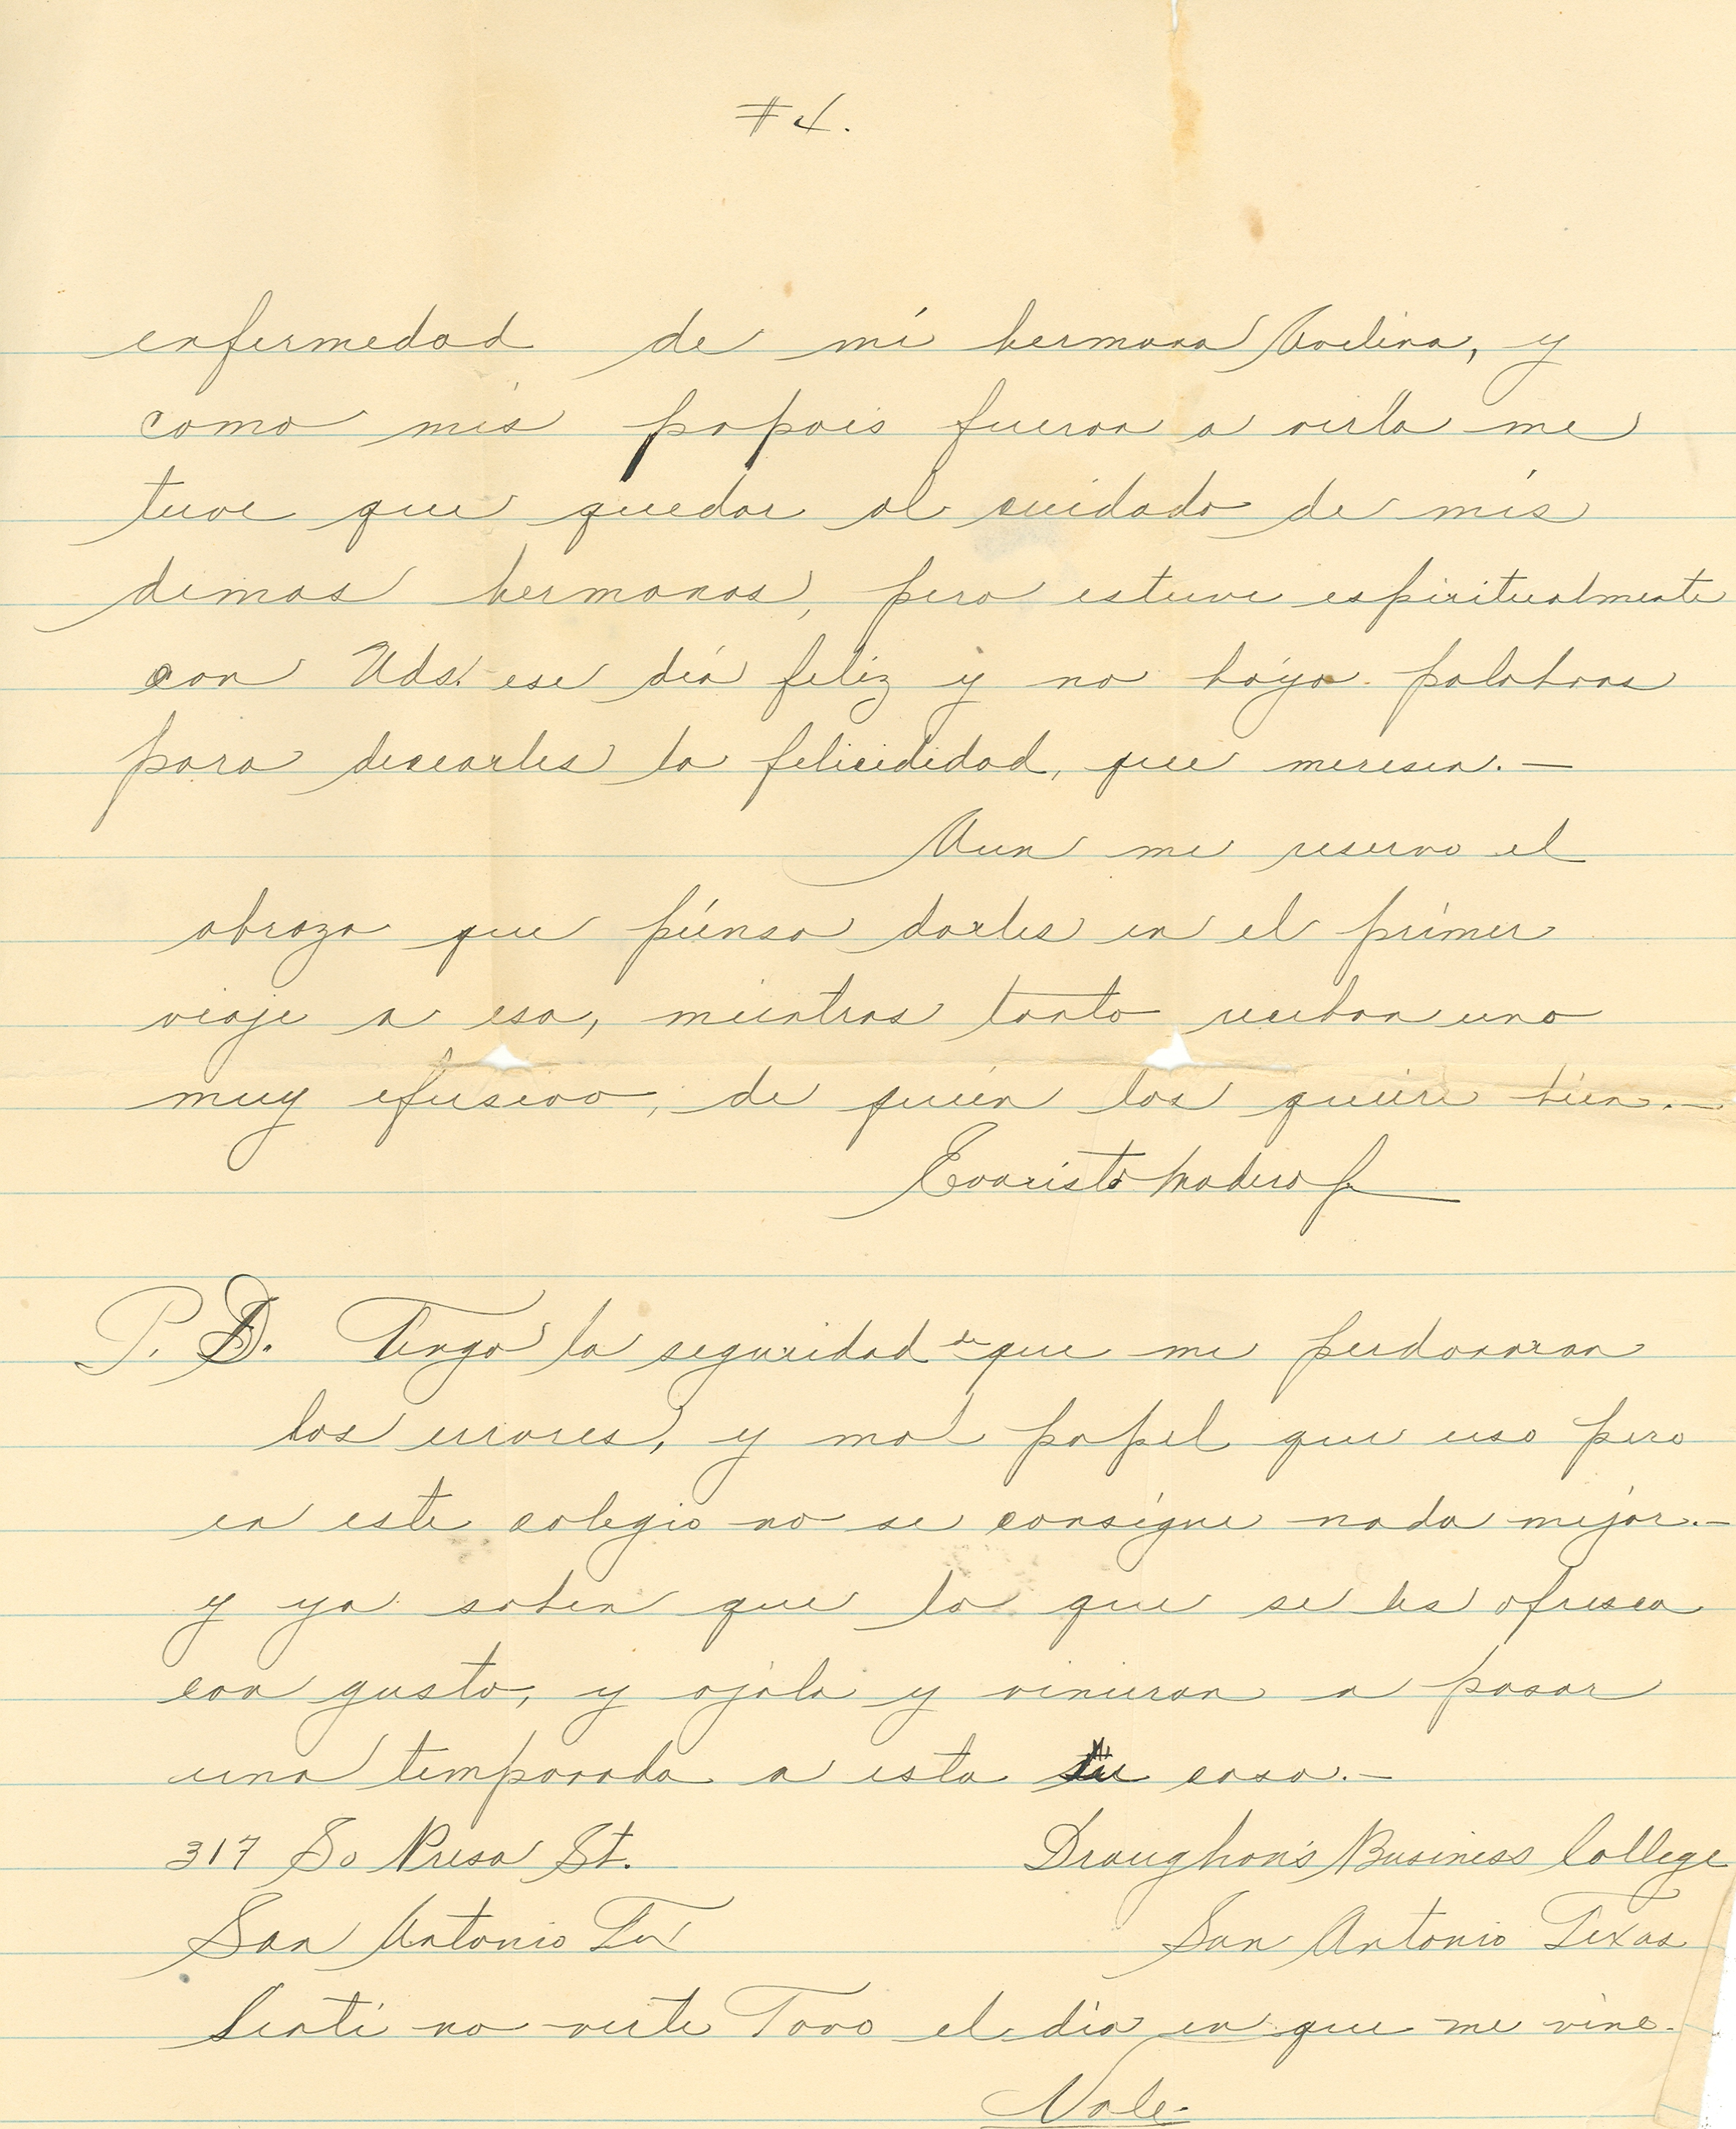 #4.
enfermedad de mi hermana Avelina, y
como mis papais fueron a verla me
tuve que quedar al cuidado de mis
demas hermanos, pero estuve espiritualmente
con Uds. ese día feliz y no hayo palabras
para desearles la felicididad, que meresen.—
Aun me reservo el
abrazo que piénso darles en el primer
viaje a esa, mientras tanto reciban uno
muy efusivo, de quien los quiere bien.—
Evaristo Madero
P. D. Tengo la seguridad de que me perdonaran
los errores, y mal papel que uso pero
en este colegio no se consigue nada mejor.—
y ya saben que lo que se les ofresca
con gusto, y ojala y vinieran a pasar
una temporada a esta su casa.—
317 So Presa St. Draughon's Business College
San Antonio Tex San Antonio Texas
Senti no verte Tavo el día en que me vine.
Vale.